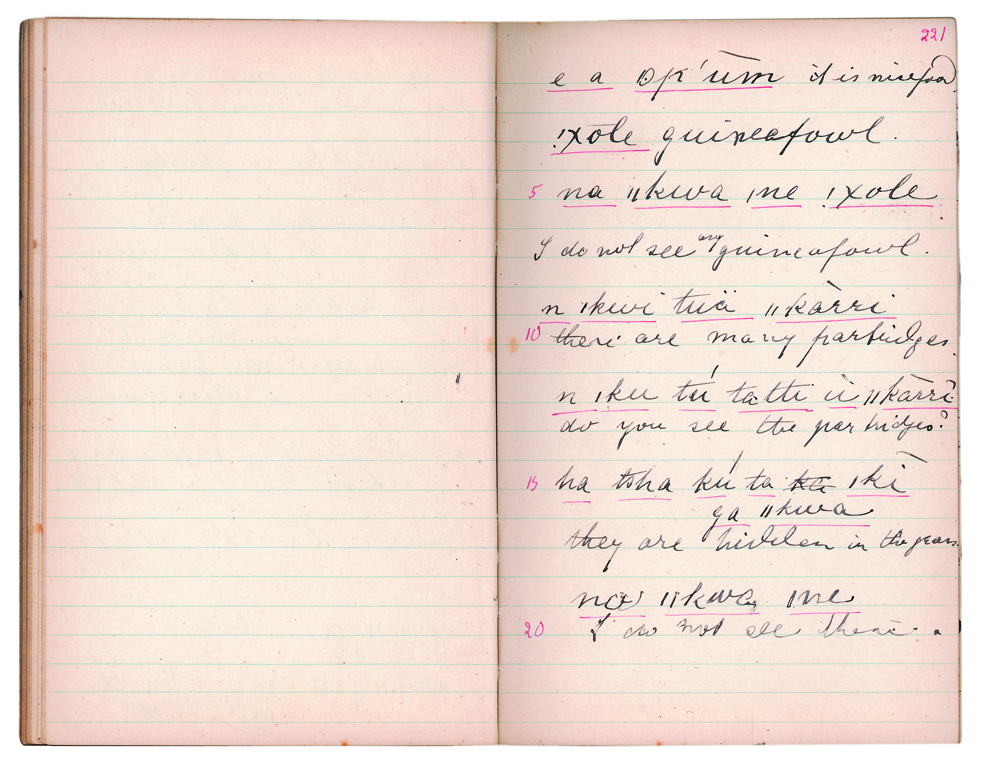 221
e a ʘp'ūm it is nice food
!xōle guineafowl.
5 na ǁkwa ǀne !xole.
I do not see any guineafowl.
n ǀkwi tuä ǁkàrri
10 there are many partridges.
n ǀku tú tatti ù ǁkārrī
do you see the partridges?
15 ha tsha kú ta ka ǀkī
ga ǁkwa
they are hidden in the grass.
na ǁkwa ǀne
20 I do not see them.